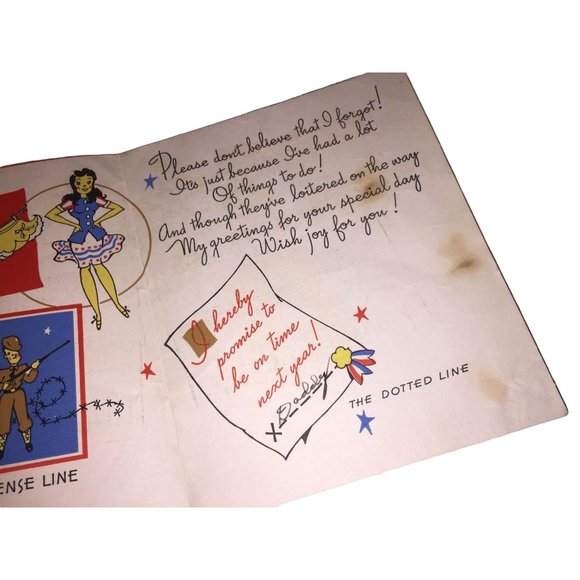 Please don't believe that I forgot!
It's just because I've had a lot
Of things to do!
And though they've loitered on the way
My greetings for your special day
Wish joy for you!
I hereby
promise to
be on time
next year!
X Daddy
THE DOTTED LINE
ENSE LINE